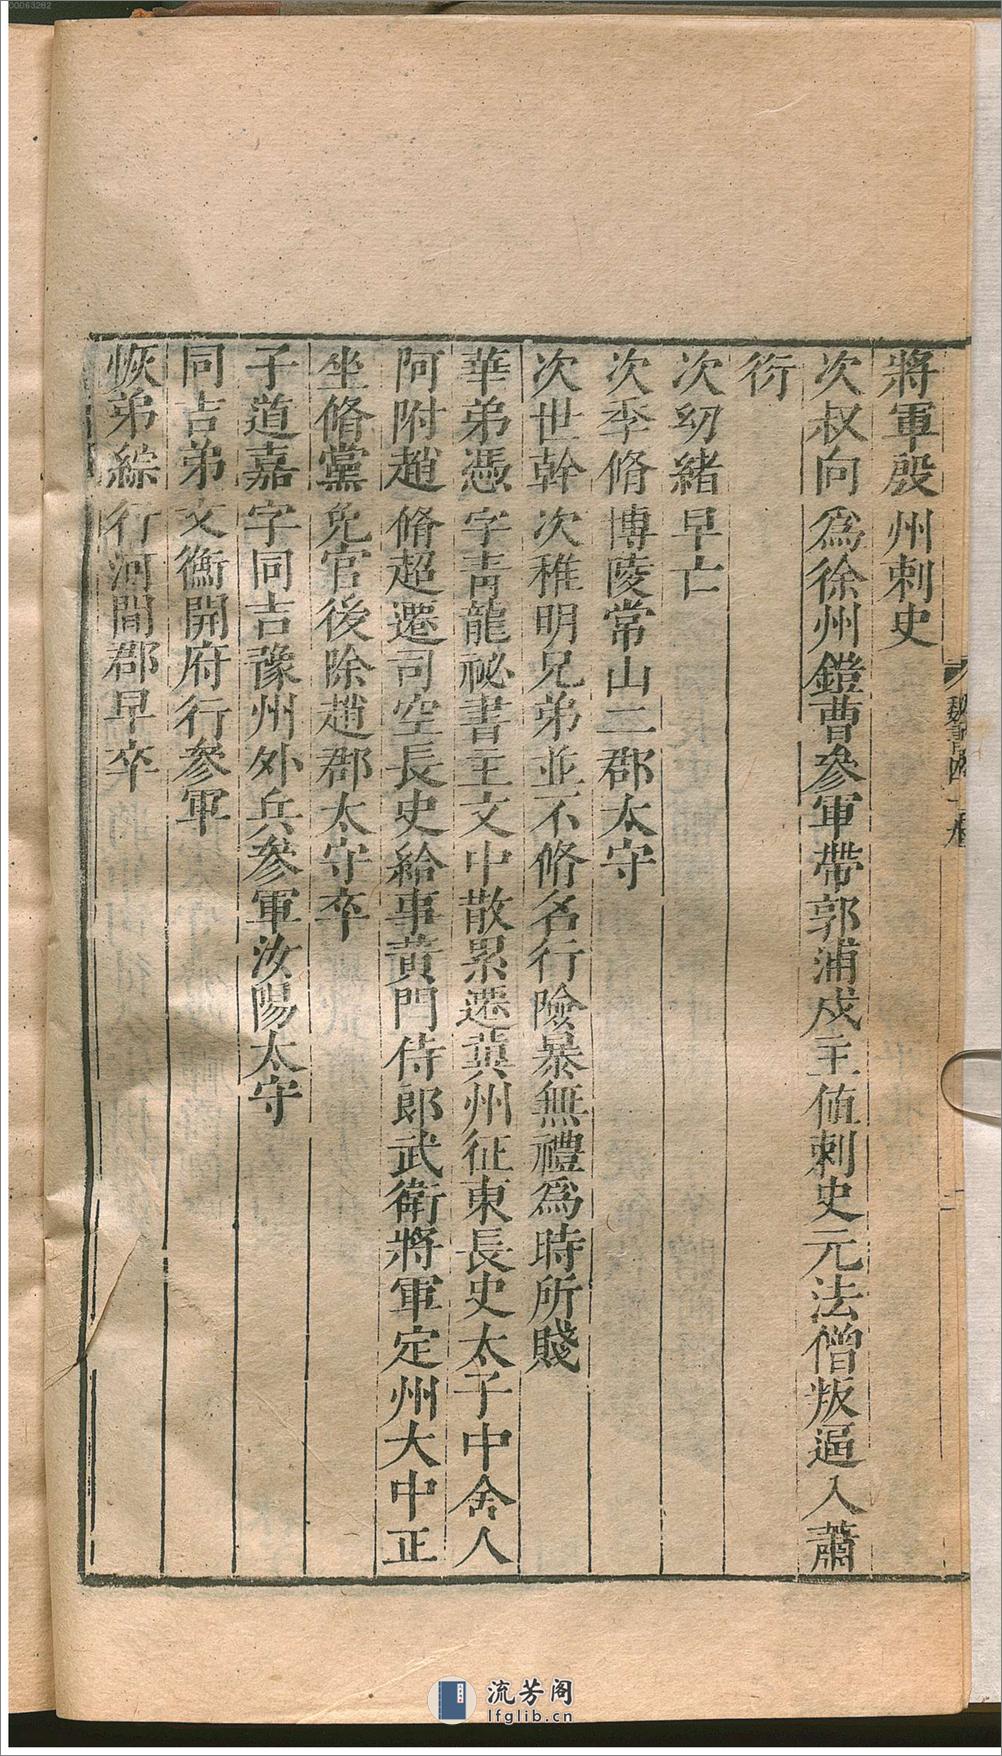 將軍殷州刺史
次叔向爲徐州鎧曹參軍帶郭浦戍主值刺史元法僧叛逼入蕭
衍
次幼緒早亡
次季脩博陵常山二郡太守
次世幹次稚明兄弟並不脩名行險暴無禮爲時所賤
華弟憑字青龍祕書主文中散累遷冀州征東長史太子中舍人
阿附趙脩超遷司空長史給事黃門侍郎武衛將軍定州大中正
坐脩黨免官後除趙郡太守卒
子道嘉字同吉豫州外兵參軍汝陽太守
同吉弟文衡開府行參軍
恢弟綜行河間郡早卒
00063282
流芳阁
lfglib.cn